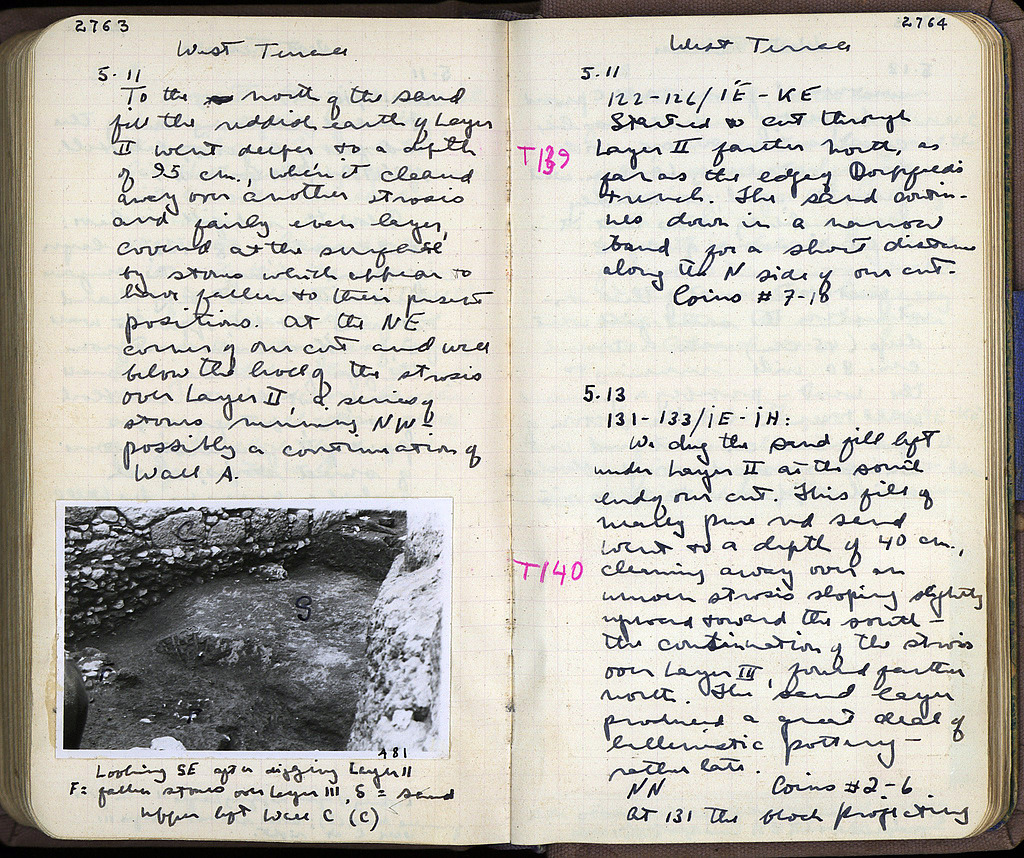 2763
West Terrace
5.11
To the north of the sand
fill the reddish earth of Layer
II went deeper to a depth
of .95 cm., when it cleaned
away over another strosis
and fairly even layer,
covered at the surface
by stones which appear to
have fallen to their present
positions. At the NE
corner of our cut and well
below the level of the strosis
over Layer II, a series of
stones running NW –
possibly a continuation of
Wall A.
C
S
481
Looking SE after digging Layer II
F = fallen stones over Layer III, S = sand
Upper left Wall C (C)
2764
West Terrace
5.11
122-126/ΙΕ-ΚΕ
Started to cut through
Layer II farther north, as
far as the edge of Dörpfeld's
trench. The sand contin-
ues down in a narrow
band for a short distance
along the N side of our cut.
Coins #7-18
T139
5.13
131-133/ΙΕ-ΙΗ:
We dug the sand fill left
under Layer II at the south
end of our cut. This fill of
mainly pure red sand
went to a depth of 40 cm.,
T140
cleaning away over an
uneven strosis sloping slightly
upward toward the south –
the continuation of the strosis
over Layer III, found farther
north. The sand layer
produced a great deal of
hellenistic pottery –
rather late.
NN Coins #2-6
At 131 the block projecting